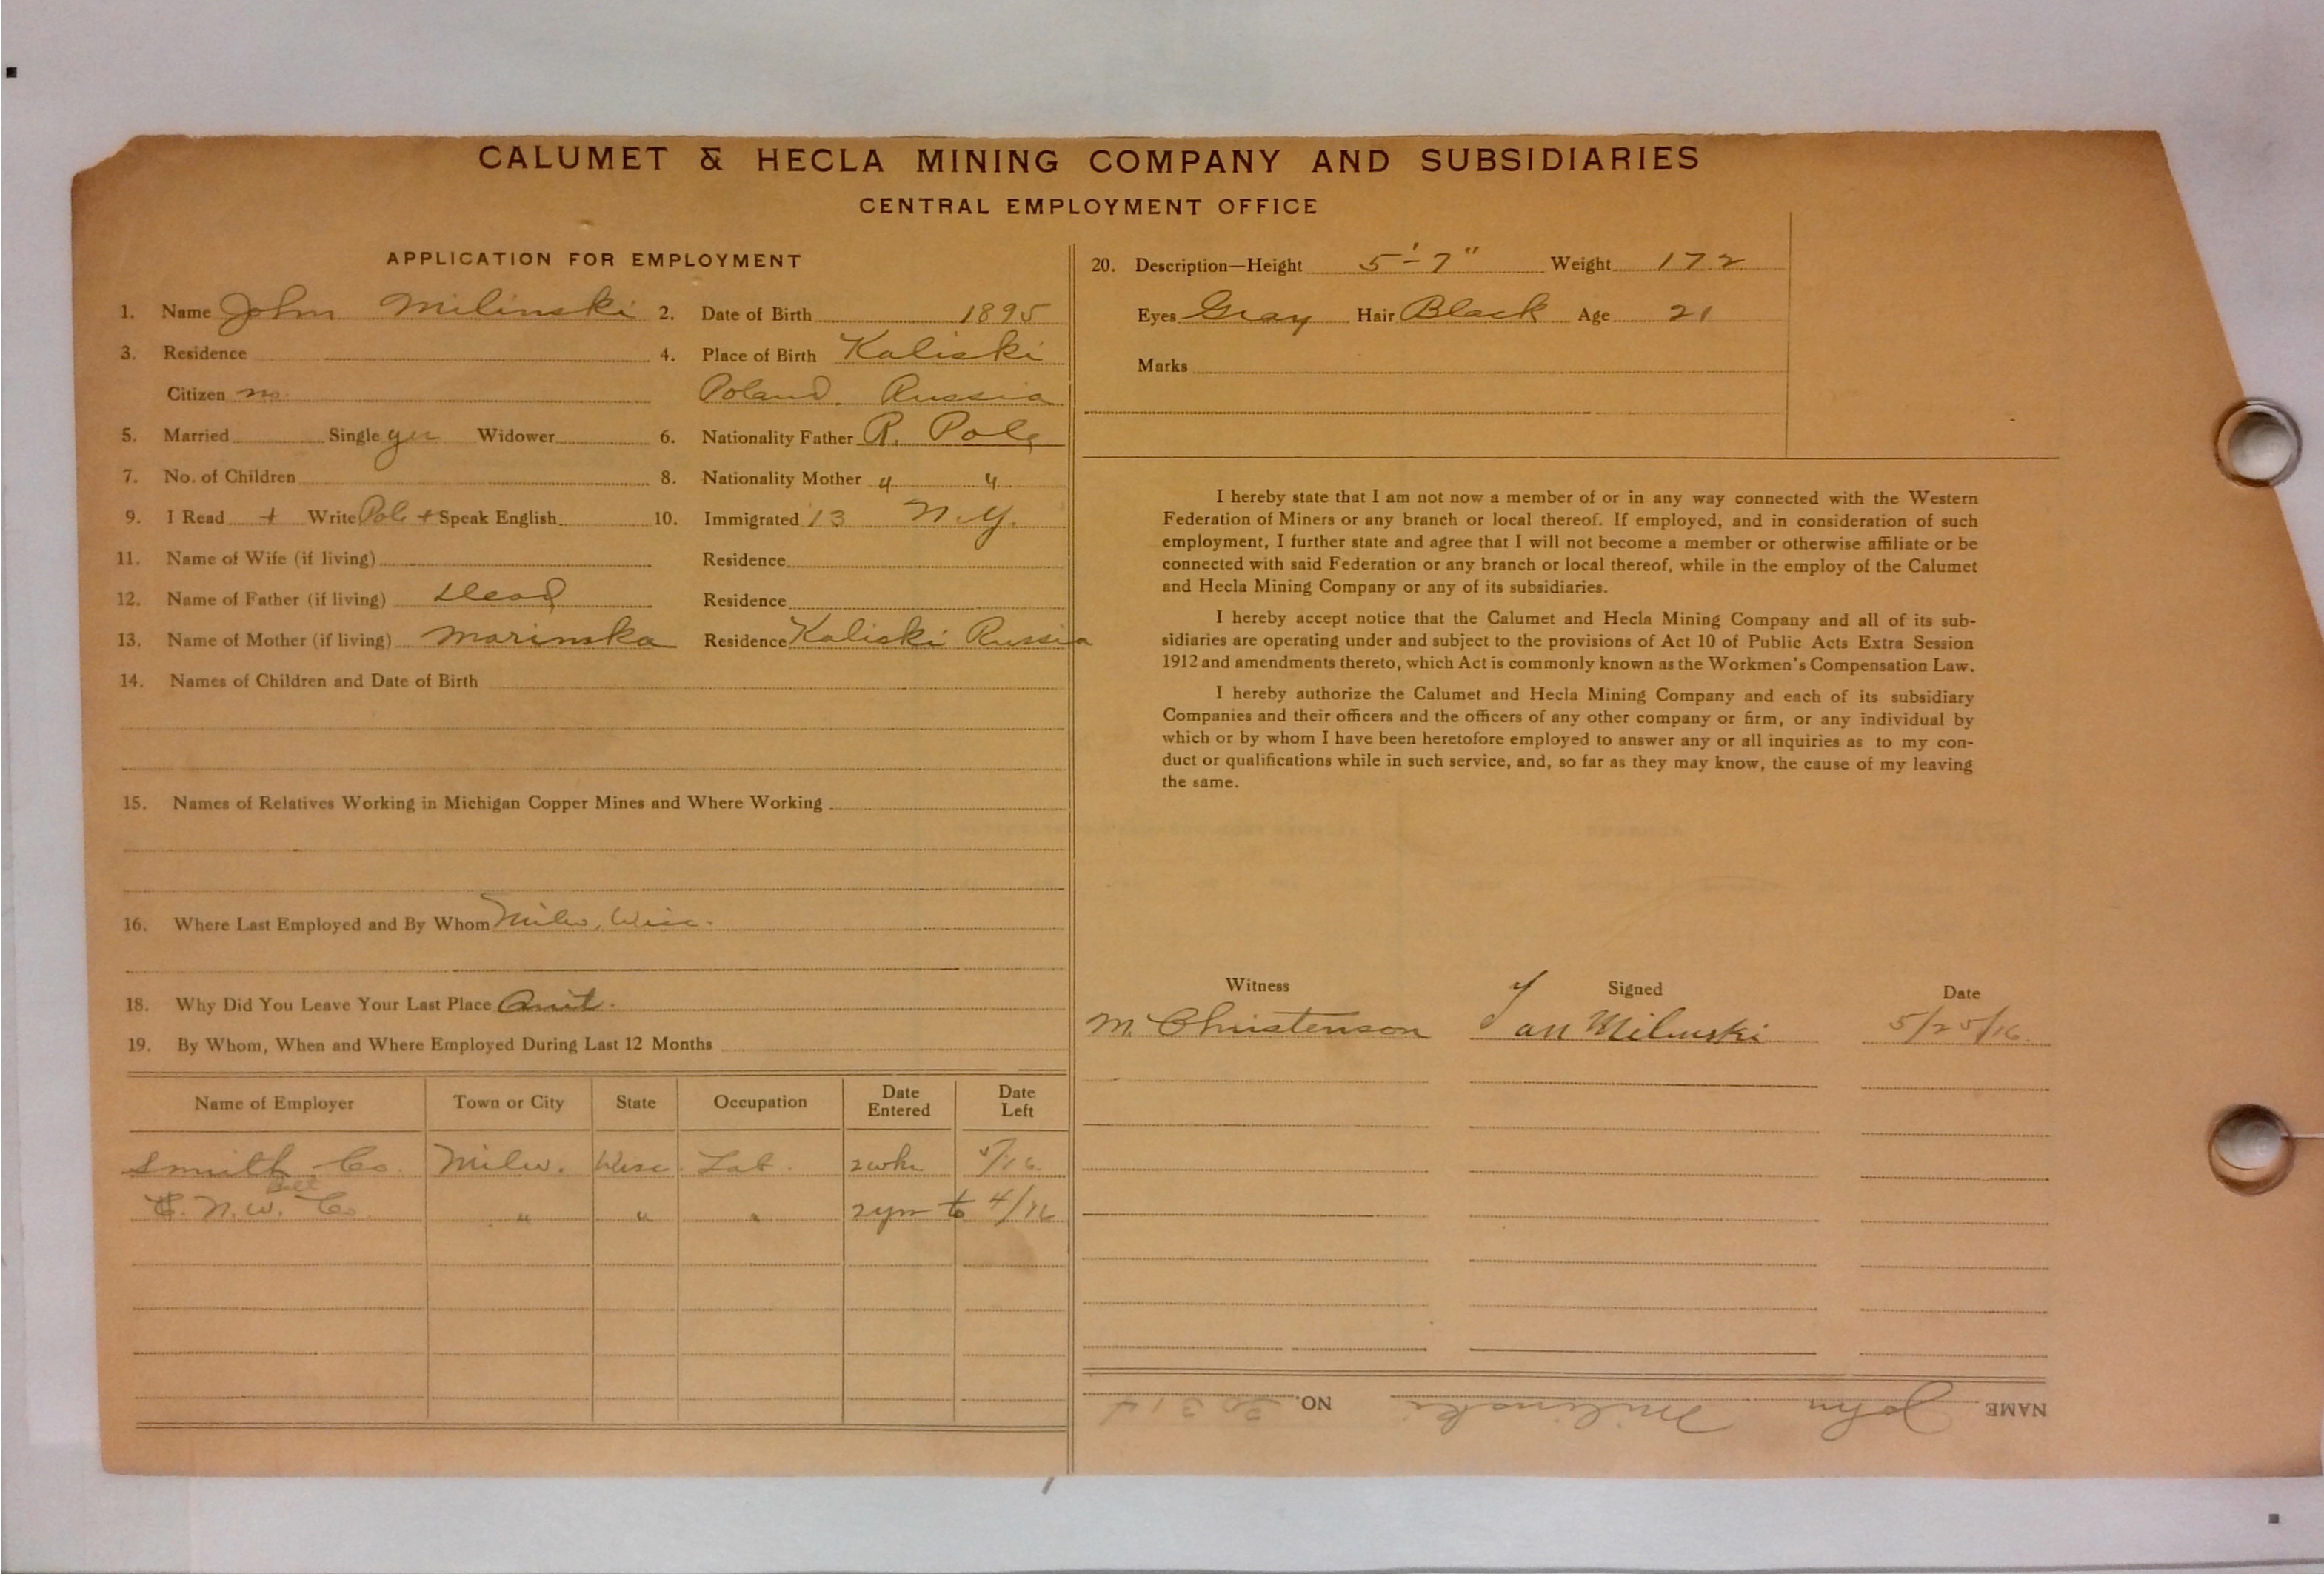 CALUMET & HECLA MINING COMPANY AND SUBSIDIARIES
CENTRAL EMPLOYMENT OFFICE
APPLICATION FOR EMPLOYMENT
1. Name John Milinski 2. Date of Birth 1895
3. Residence 4. Place of Birth Kaliski
Citizen no Poland. Russia
5. Married Single yes Widower 6. Nationality Father R. Pole
7. No. of Children 8. Nationality Mother " "
9. I Read + Write Pole + Speak English 10. Immigrated '13 N.Y.
11. Name of Wife (if living) Residence
12. Name of Father (if living) Dead Residence
13. Name of Mother (if living) Marinska Residence Kaliski Russia
14. Names of Children and Date of Birth
15. Names of Relatives Working in Michigan Copper Mines and Where Working
16. Where Last Employed and By Whom Milw, Wisc.
18. Why Did You Leave Your Last Place Quit.
19. By Whom, When and Where Employed During Last 12 Months
Name of Employer Town or City State Occupation Date Entered Date Left
Smith Co. Milw. Wisc. Lab. 2 wks 5/16
N.W. Bell Co. " " " 2 yrs to 4/16
20. Description—Height 5'-7" Weight 172
Eyes Gray Hair Black Age 21
Marks
I hereby state that I am not now a member of or in any way connected with the Western
Federation of Miners or any branch or local thereof. If employed, and in consideration of such
employment, I further state and agree that I will not become a member or otherwise affiliate or be
connected with said Federation or any branch or local thereof, while in the employ of the Calumet
and Hecla Mining Company or any of its subsidiaries.
I hereby accept notice that the Calumet and Hecla Mining Company and all of its sub-
sidiaries are operating under and subject to the provisions of Act 10 of Public Acts Extra Session
1912 and amendments thereto, which Act is commonly known as the Workmen's Compensation Law.
I hereby authorize the Calumet and Hecla Mining Company and each of its subsidiary
Companies and their officers and the officers of any other company or firm, or any individual by
which or by whom I have been heretofore employed to answer any or all inquiries as to my con-
duct or qualifications while in such service, and, so far as they may know, the cause of my leaving
the same.
Witness Signed Date
M. Christenson Jan Milinski 5/25/16
NAME John Milinski NO.